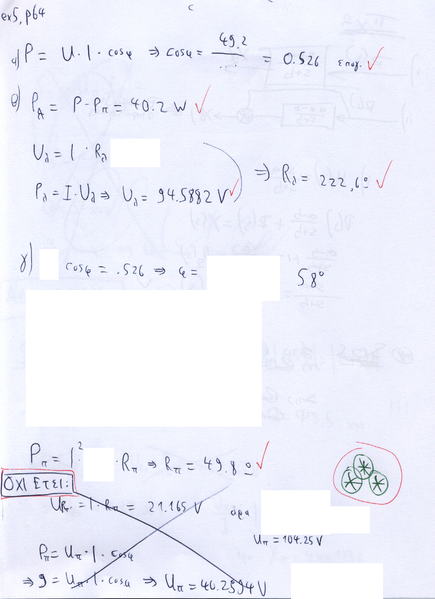 ex5, p64
α) P = U · I · cosφ ⇒ cosφ = 49.2 / ..... = 0.526 επαγ. ✓
β) Pλ = P - Pπ = 40.2 W ✓
Uλ = I · Rλ
Pλ = I · Uλ ⇒ Uλ = 94.5882 V ✓ ⇒ Rλ = 222,6 Ω ✓
γ) cosφ = .526 ⇒ φ = 58°
Pπ = I² · Rπ ⇒ Rπ = 49.8 Ω ✓
ΟΧΙ ΕΤΣΙ:
URπ = I · Rπ = 21.165 V άρα
Uπ = 104.25 V
Pπ = Uπ · I · cosφ
⇒ 9 = Uπ · I · cosφ ⇒ Uπ = 40.2594 V